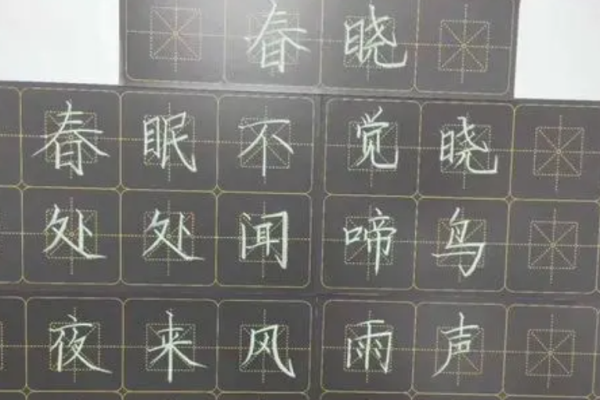 春晓
春眠不觉晓
处处闻啼鸟
夜来风雨声